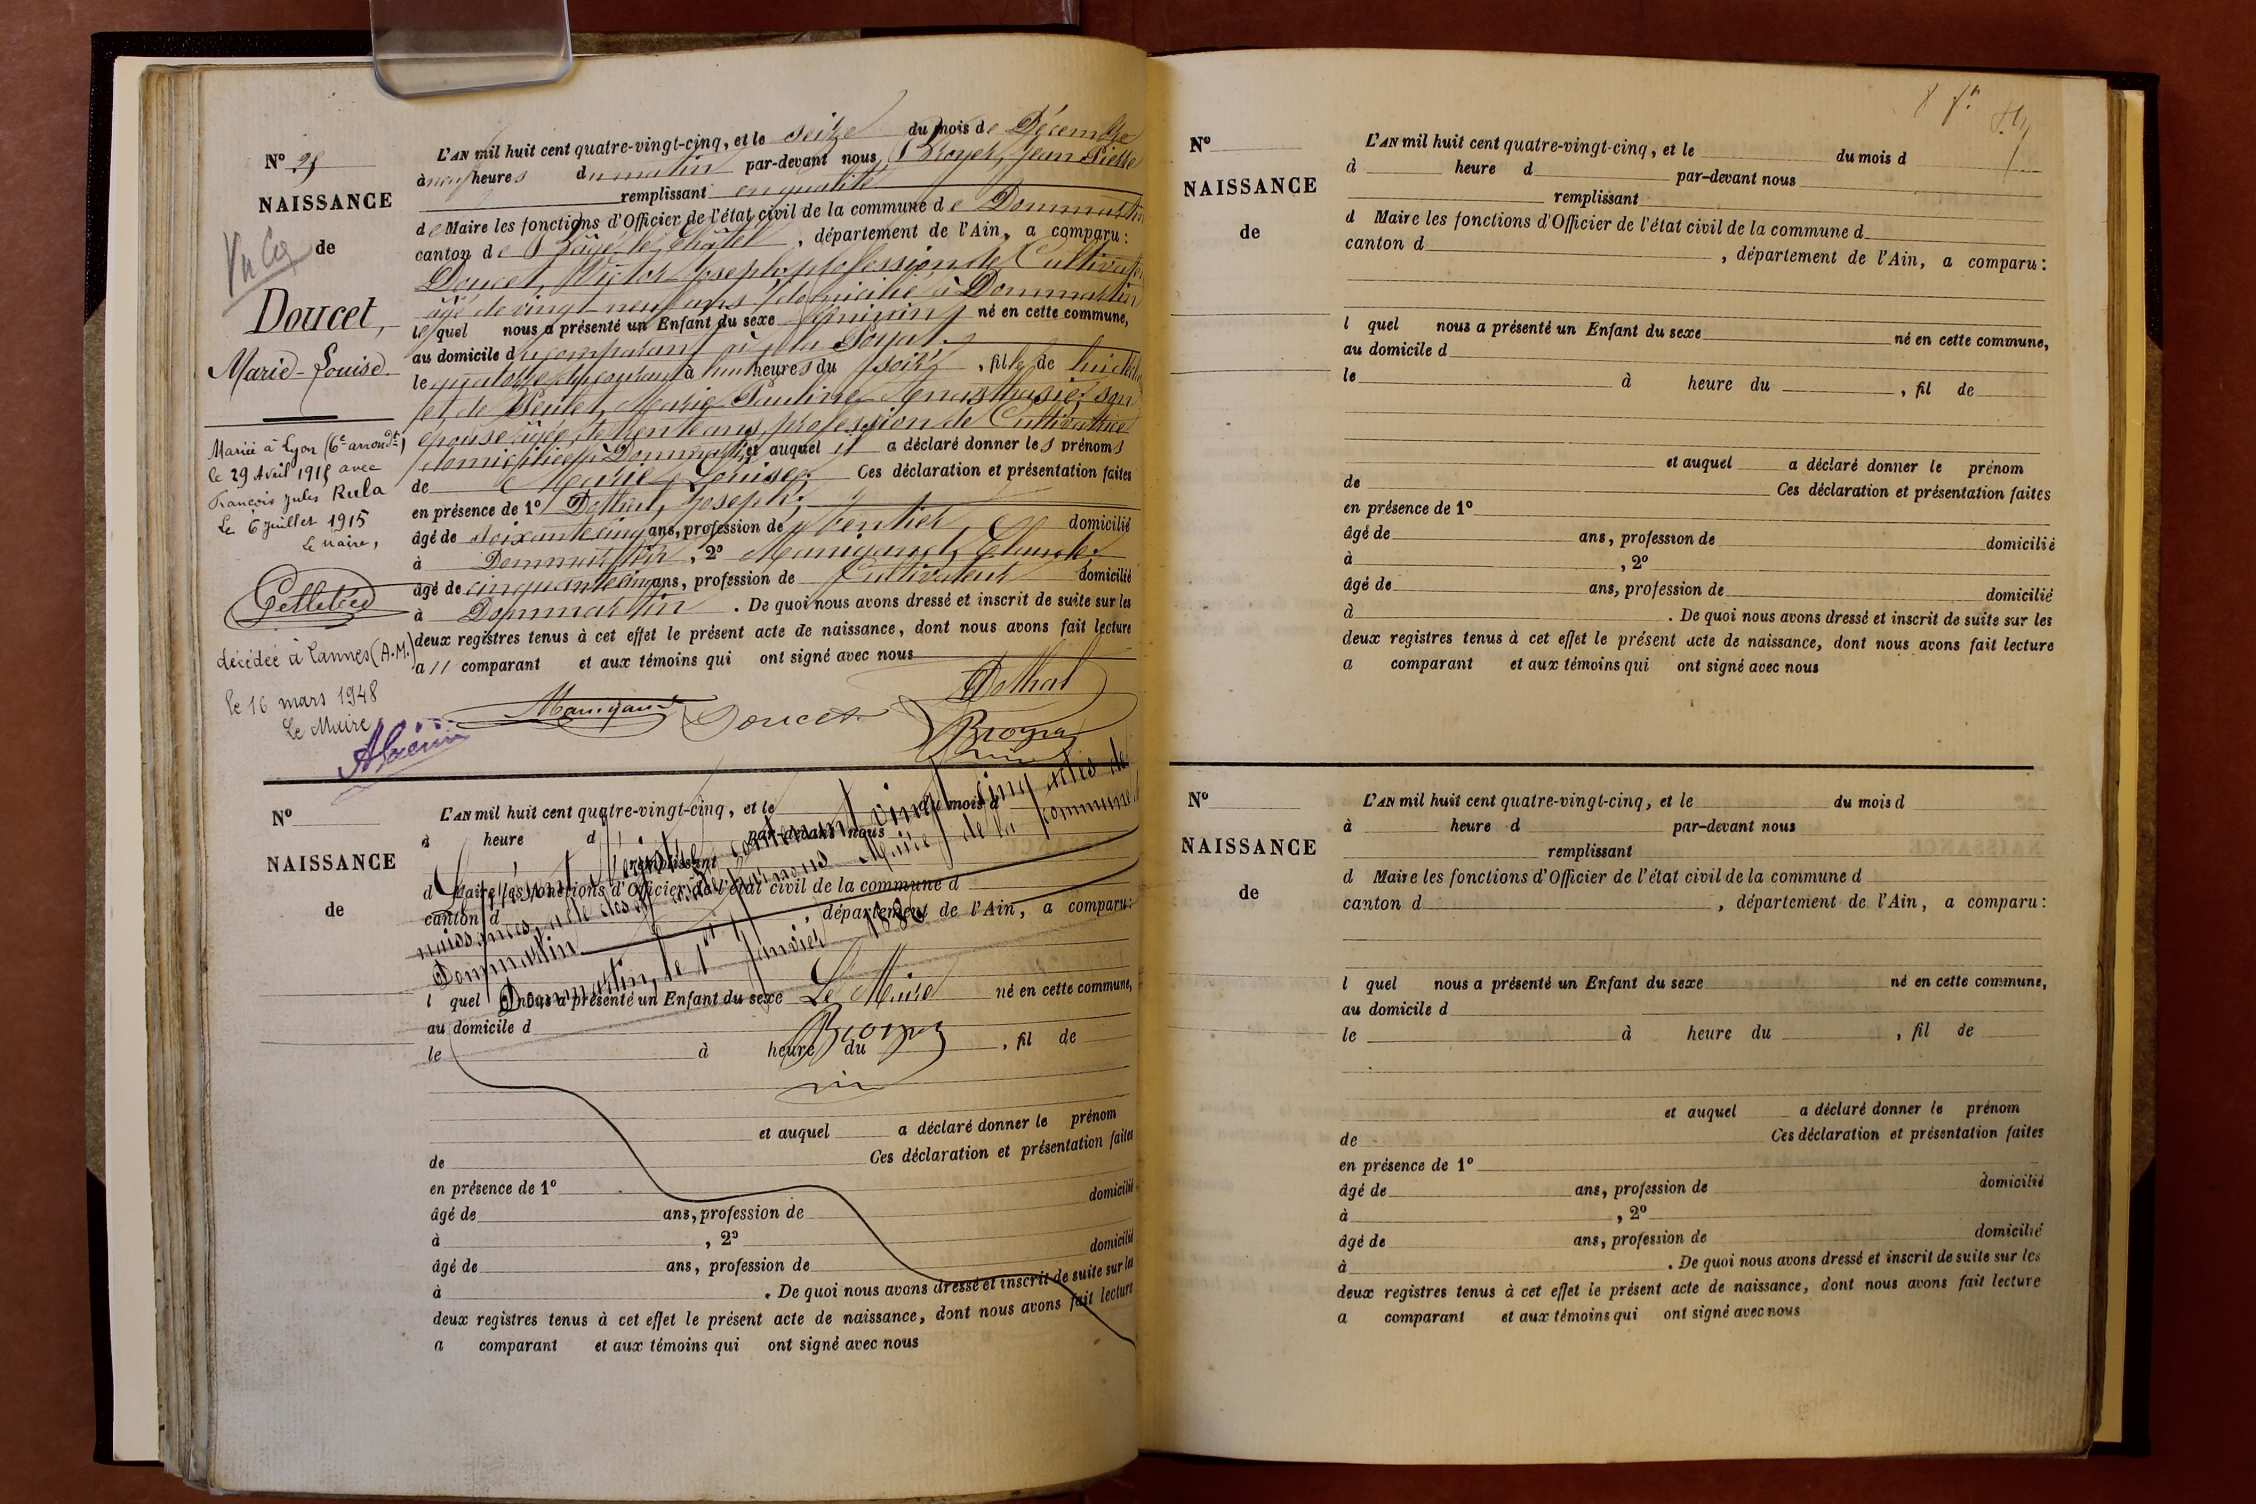 N° 25
NAISSANCE
de
Doucet,
Marie-Louise
Mariée à Lyon (6e arrondt)
le 29 Avril 1915 avec
François Jules Rula
Le 6 juillet 1915
Le Maire,
décédée à Cannes (A.M.)
le 16 mars 1948
Le Maire
L'AN mil huit cent quatre-vingt-cinq, et le seize du mois de Décembre
à neuf heures du matin par-devant nous Broyer, Jean Pierre
remplissant en qualité
de Maire les fonctions d'Officier de l'état civil de la commune de Dommartin
canton de Bâgé-le-Châtel, département de l'Ain, a comparu:
Doucet, Victor Joseph, profession de Cultivateur
âgé de vingt neuf ans, domicilié à Dommartin
lequel nous a présenté un Enfant du sexe féminin né en cette commune,
au domicile du comparant à
le quatorze du courant à heures du soir, fille de lui
et de Marie Pauline Anasthasie, son
épouse âgée de trente ans, profession de Cultivatrice
domiciliée à Dommartin, et auquel il a déclaré donner les prénoms
de Marie Louise. Ces déclaration et présentation faites
en présence de 1° Dothal, Joseph,
âgé de soixante cinq ans, profession de rentier, domicilié
à Dommartin, 2° Manigand, Claude.
âgé de cinquante cinq ans, profession de Cultivateur domicilié
à Dommartin. De quoi nous avons dressé et inscrit de suite sur les
deux registres tenus à cet effet le présent acte de naissance, dont nous avons fait lecture
a u comparant et aux témoins qui ont signé avec nous
Manigand Doucet Dothal
Broyer
N°
NAISSANCE
de
L'AN mil huit cent quatre-vingt-cinq, et le du mois d
à heure d par-devant nous
remplissant
d Maire les fonctions d'Officier de l'état civil de la commune d
canton d , département de l'Ain, a comparu:
Le présent Registre contenant vingt cinq actes de
naissances, a été clos et arrêté par nous Maire de la commune de
Dommartin
Dommartin, le 1er Janvier 1886
Le Maire
Broyer
l quel nous a présenté un Enfant du sexe né en cette commune,
au domicile d
le à heure du , fil de
et auquel a déclaré donner le prénom
de Ces déclaration et présentation faites
en présence de 1°
âgé de ans, profession de domicilié
à , 2°
âgé de ans, profession de domicilié
à . De quoi nous avons dressé et inscrit de suite sur les
deux registres tenus à cet effet le présent acte de naissance, dont nous avons fait lecture
a comparant et aux témoins qui ont signé avec nous
N°
NAISSANCE
de
L'AN mil huit cent quatre-vingt-cinq, et le du mois d
à heure d par-devant nous
remplissant
d Maire les fonctions d'Officier de l'état civil de la commune d
canton d , département de l'Ain, a comparu:
l quel nous a présenté un Enfant du sexe né en cette commune,
au domicile d
le à heure du , fil de
et auquel a déclaré donner le prénom
de Ces déclaration et présentation faites
en présence de 1°
âgé de ans, profession de domicilié
à , 2°
âgé de ans, profession de domicilié
à . De quoi nous avons dressé et inscrit de suite sur les
deux registres tenus à cet effet le présent acte de naissance, dont nous avons fait lecture
a comparant et aux témoins qui ont signé avec nous
N°
NAISSANCE
de
L'AN mil huit cent quatre-vingt-cinq, et le du mois d
à heure d par-devant nous
remplissant
d Maire les fonctions d'Officier de l'état civil de la commune d
canton d , département de l'Ain, a comparu:
l quel nous a présenté un Enfant du sexe né en cette commune,
au domicile d
le à heure du , fil de
et auquel a déclaré donner le prénom
de Ces déclaration et présentation faites
en présence de 1°
âgé de ans, profession de domicilié
à , 2°
âgé de ans, profession de domicilié
à . De quoi nous avons dressé et inscrit de suite sur les
deux registres tenus à cet effet le présent acte de naissance, dont nous avons fait lecture
a comparant et aux témoins qui ont signé avec nous